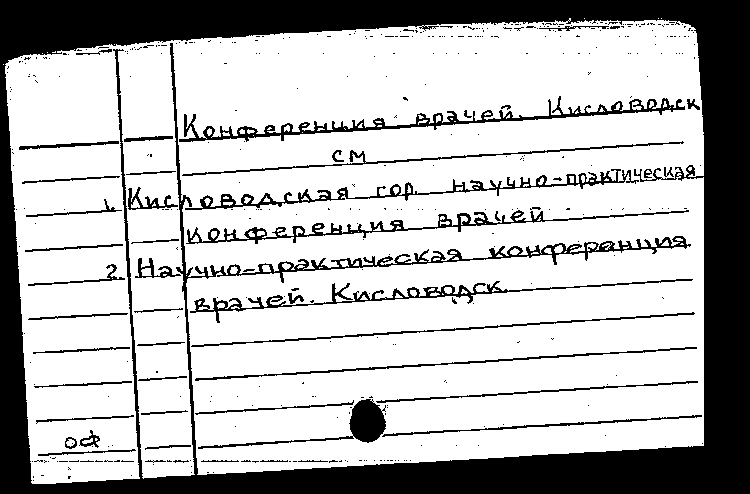 Конференция врачей. Кисловодск
см
1. Кисловодская гор. научно-практическая
конференция врачей
2. Научно-практическая конференция
врачей. Кисловодск.
оф